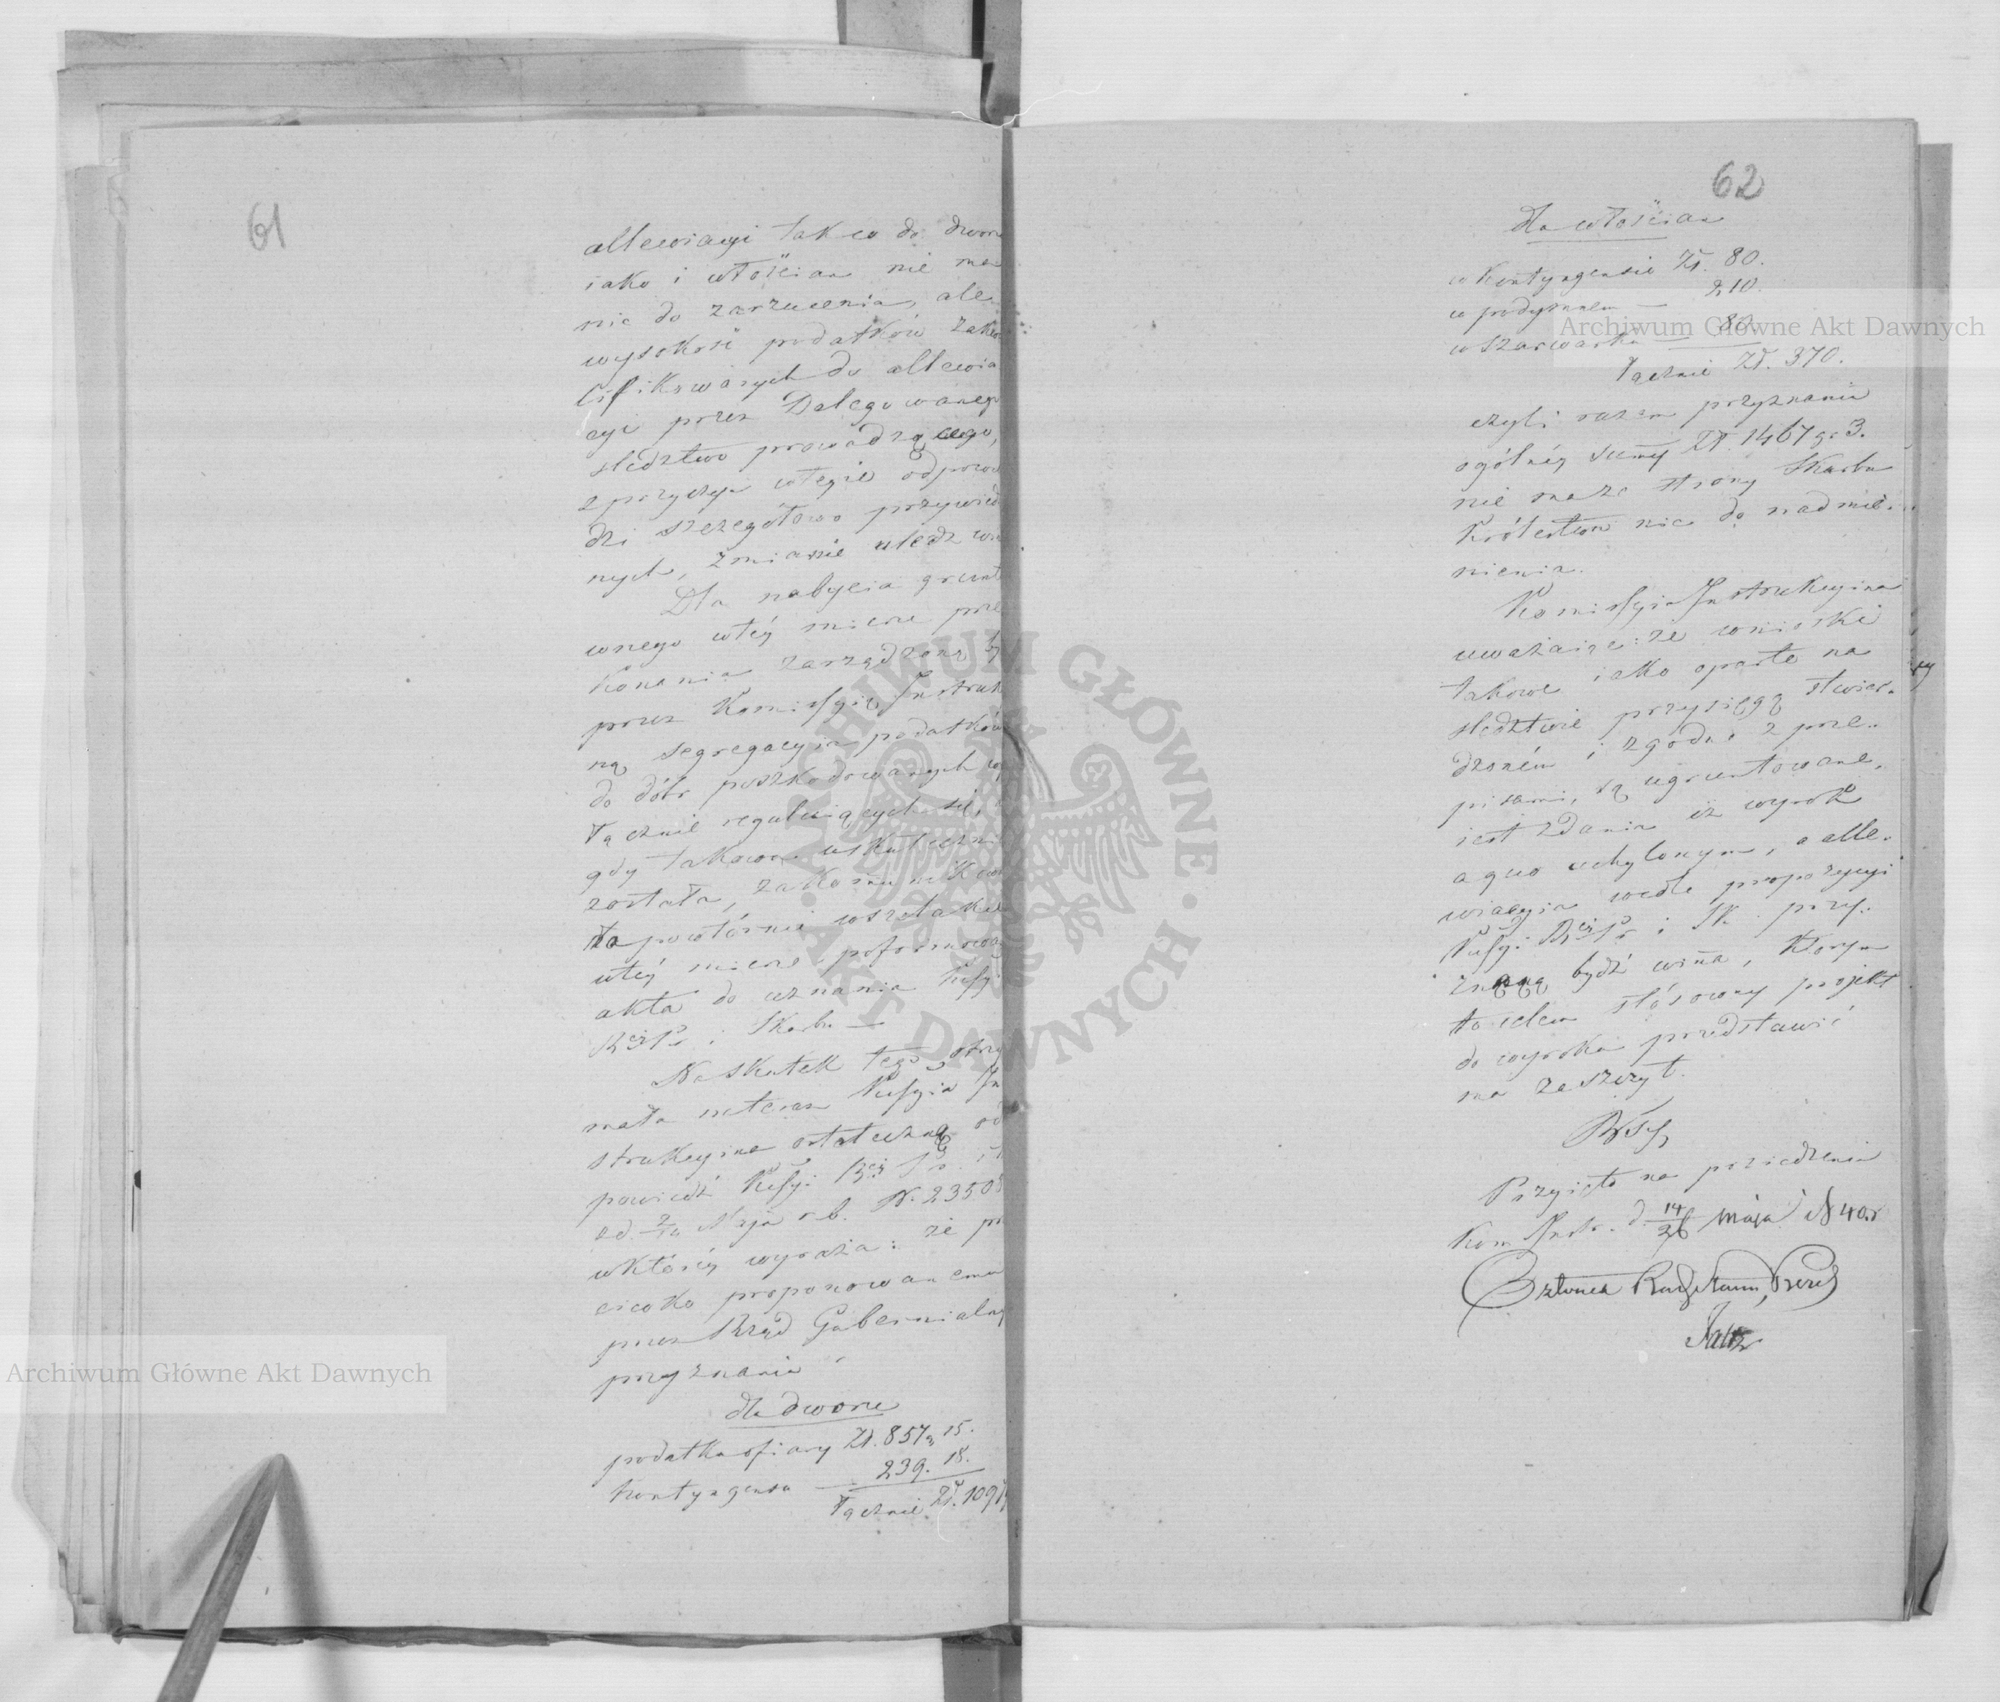 61
allewiacyi tak co do dworu
iako i włościan nie ma
nic do zarzucenia, ale
wysokość podatków zakwa
lifikowanych do allewia
cyi przez Delegowanego
śledztwo prowadzącego,
z przyczyn w tejże odpowie
dzi szczegółowo przywiedzio
nych, zmianie uledz win
Dla nabycia grunto
wnego w tej mierze prze
konania zarządzoną by
przez Komissyię Instruk
segregacyia podatków
do dóbr poszkodowanych
łącznie regulujących się,
gdy takowa uskutecznio
została, zakommunikowa
ła powtórnie wszelakie
w tej mierze poformowa
akta do uznania Kssyi
Rz Pr i Skarbu —
Na skutek tego, otrzy
mała nateraz Kssyia In
strukcyina ostateczną od
powiedź Kssyi Rz Pr. i
z d. 2/14 Maja r. b. N. 2350
w której wyraża: że prze
ciwko proponowanemu
przez Rząd Gubernialny
przyznaniu
dla dworu
podatku ofiary Zł. 857 gr 15.
kontyngensu — 239. 18.
Łącznie Zł. 109
62
dla włościan
w kontyngensie Zł. 80.
w podymnem — 210.
w szarwarku — 80.
Łącznie Zł. 370.
czyli razem przyznaniu
ogólnej summy Zł. 1467 gr 3.
nie ma ze strony Skarbu
Królestwa nic do nadmie-
nienia.
Komissyia Instrukcyina
uważaiąc: że wnioski
takowe iako oparte na
śledztwie przysięgą stwier-
dzoném i zgodne z prze-
pisami, są ugruntowane,
jest zdania iż wyrok
a quo uchylonym, a alle-
wiacyia wedle propozycyi
Kssyi Rz Pr i Sk. przy-
znaną bydź winna, którym
to celem stósowny projekt
do wyroku przedstawić
ma zaszczyt.
Przyięto na posiedzeniu
Kom Instr. d. 14/26 maja 1840 r
Członek Rady Stanu, Prezes
Archiwum Główne Akt Dawnych
Archiwum Główne Akt Dawnych
ARCHIWUM GŁÓWNE · AKT DAWNYCH ·